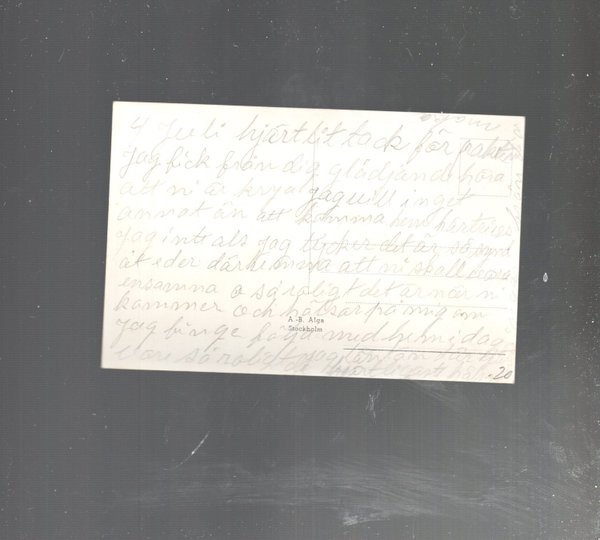 4 Juli hjärtlit tack för paketet
Jag fick från dig glädjande höra
att ni är krya jag vill inget
annat än att komma hem härtrives
Jag inte als jag tycker det är så synd
åt eder därhemma att ni skall vara
ensamna o så roligt det är när ni
kommer och hälsar på mig om
Jag finge följa med hem i dag
vore så roligt jag
A.-B. Alga
Stockholm
20